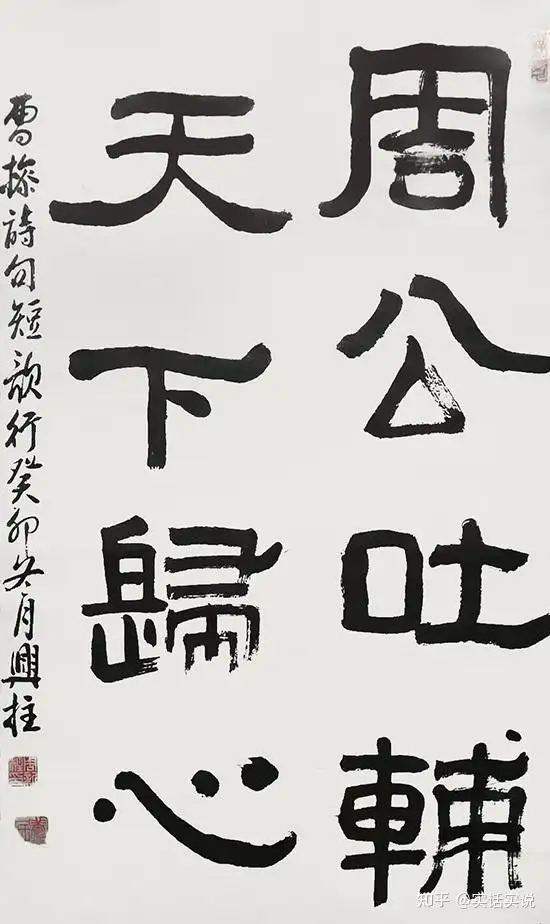 周公吐輔
天下歸心
曹操詩句短歌行癸卯冬月興柱
知乎 @实话实说